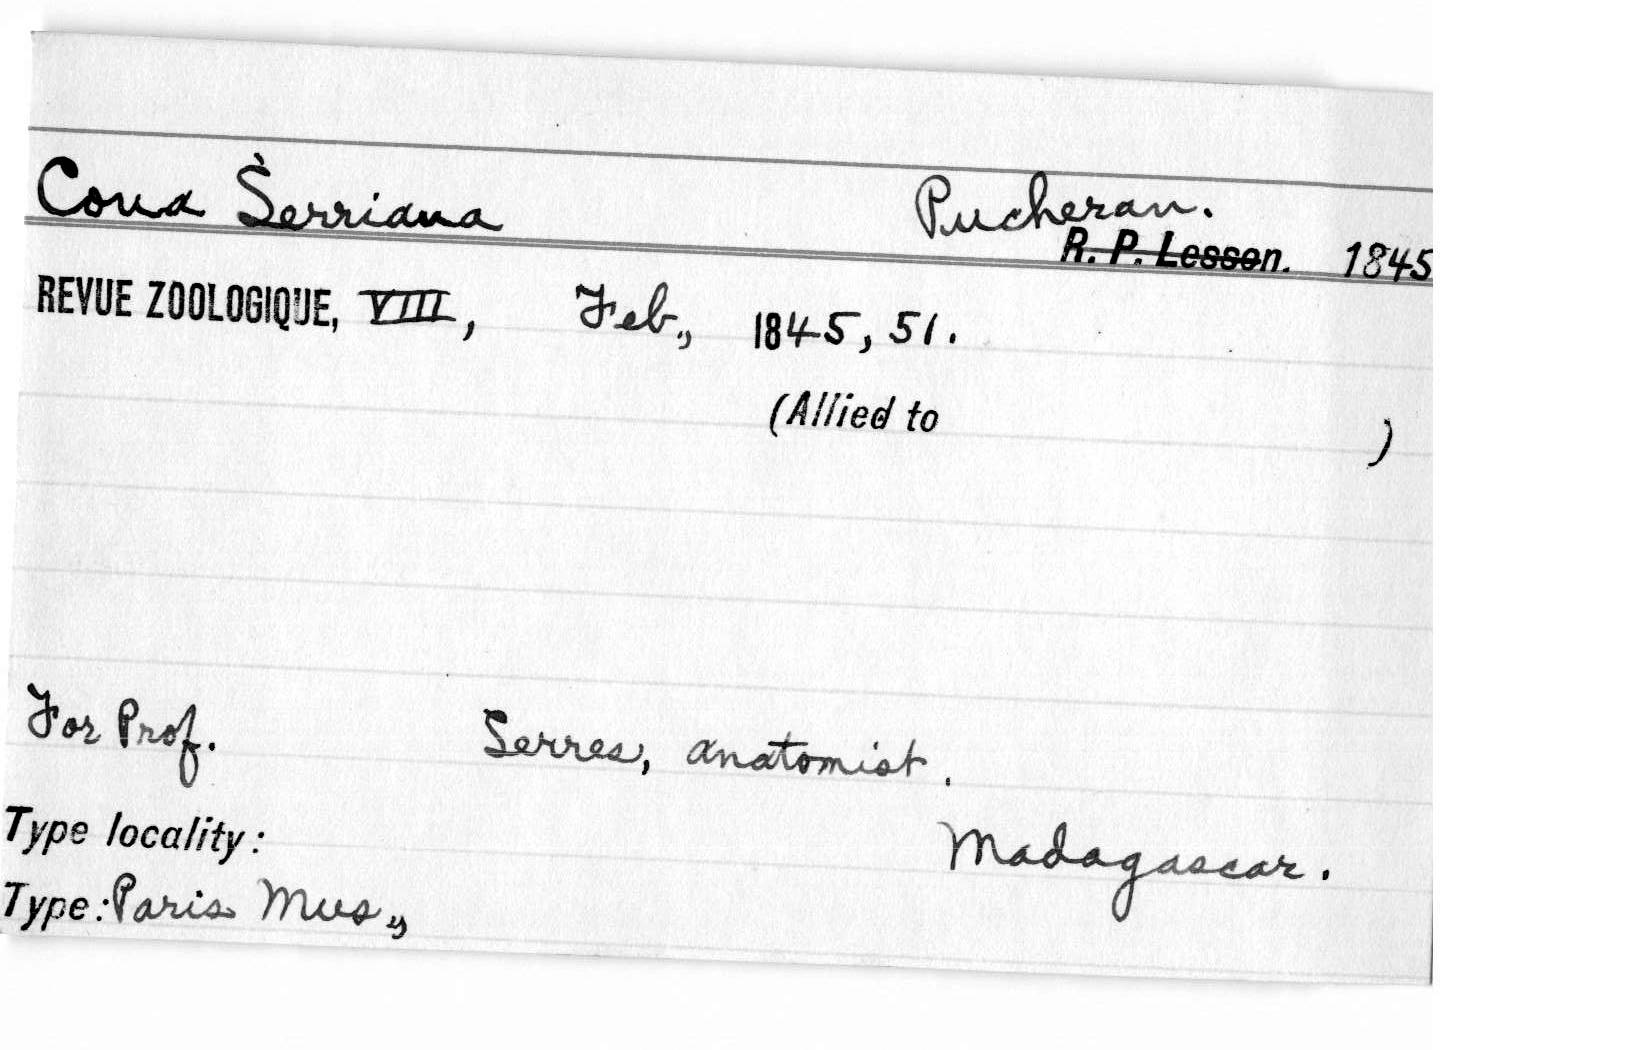 Coua Serriana Pucheran.
R. P. Lesson. 1845
REVUE ZOOLOGIQUE, VIII, Feb., 1845, 51.
(Allied to )
For Prof. Serres, anatomist.
Type locality: Madagascar.
Type: Paris Mus.,